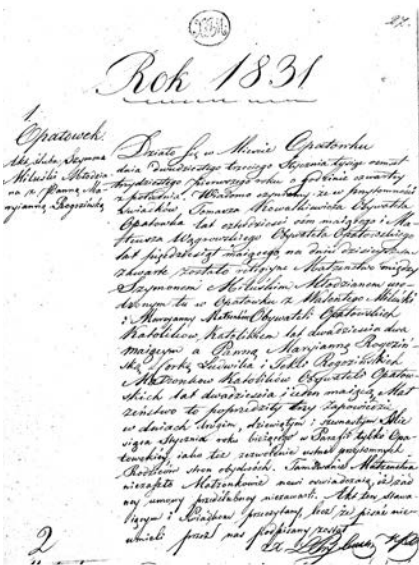 27.
Rok 1831
1.
Opatowek.
Akt ślubu Szymona
Miluśki Młodzia-
na z Panną Ma-
ryianną Rogozińską
Działo się w Mieście Opatowku
dnia dwudziestego trzeciego Stycznia tysiąc ośmset
trzydziestego pierwszego roku o godzinie czwartey
z południa. Wiadomo czyniemy że w przytomności
Świadków Tomasza Kowalkiewicza Obywatela
Opatowka lat czterdzieści ośm maiącego i Ma-
teusza Wągrowskiego Obywatela Opatowskiego
lat pięćdziesiąt maiącego na dniu dzisieyszem
zawarte zostało religiyne Małżeństwo między
Szymonem Miluśkim Młodzianem uro-
dzonym tu w Opatowku z Walentego Miluśki
i Maryanny Małżonków Obywateli Opatowskich
Katolików, Katolikiem lat dwadzieścia dwa
maiącym a Panną Maryianną Rogoziń-
ską córką Ludwika i Tekli Rogozińskich
Małżonków Katolików Obywateli Opatow-
skich lat dwadzieścia i ieden maiącą Mał-
żeństwo to poprzedziły trzy zapowiedzie
w dniach drugim, dziewiątym i szesnastym Mie-
siąca Stycznia roku bieżącego w Parafii tylko Opa-
towskiey, iako też zezwolenie ustne przytomnych
Rodziców stron obydwóch. Tamowanie Małżeństwa
niezaszło Małżonkowie nowi oświadczaią, iż żad
ney umowy przedślubney niezawarli. Akt ten stawa-
iącym i Świadkom przeczytany, lecz że pisać nie-
umieli przez nas podpisany został
2